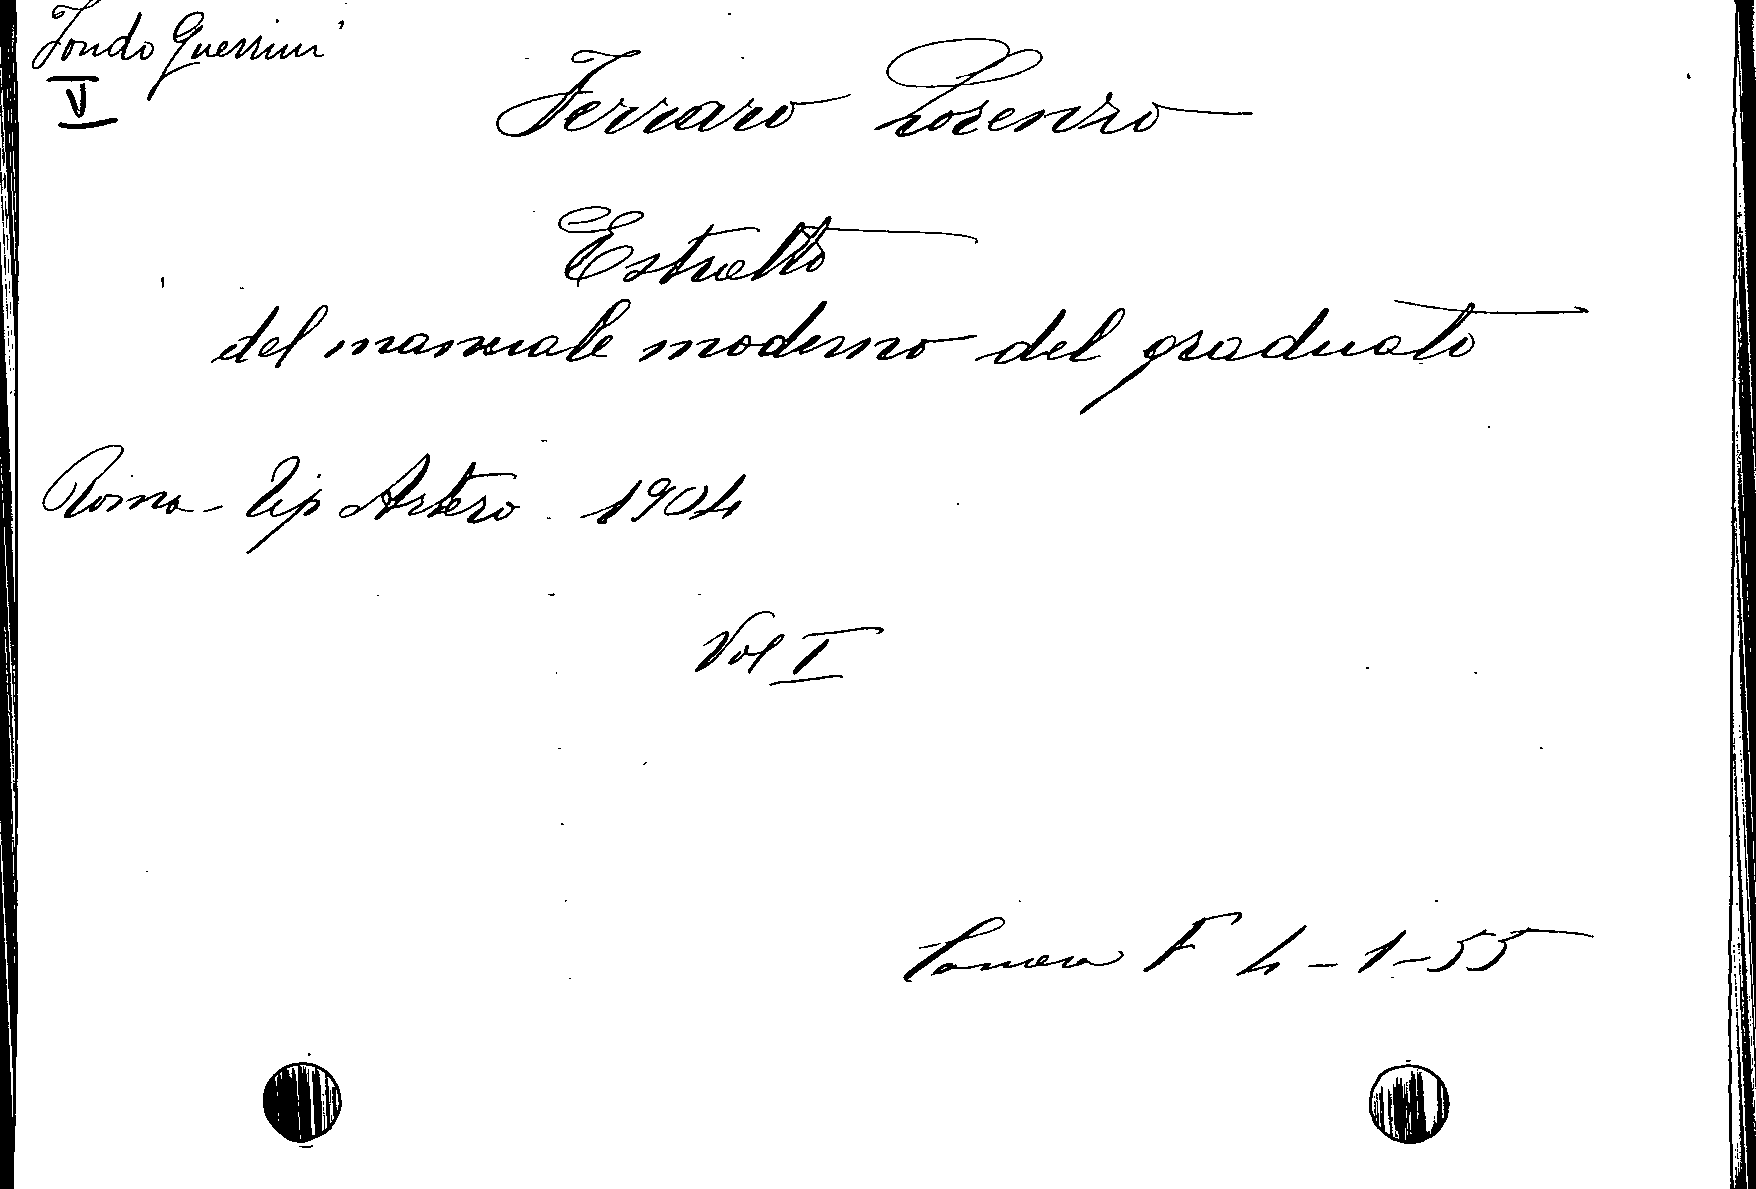 Fondo Guerrini
V
Ferraro Lorenzo
Estratto
del manuale moderno del graduato
Roma - Tip Artero 1904
Vol I
Camera F 4-1-55